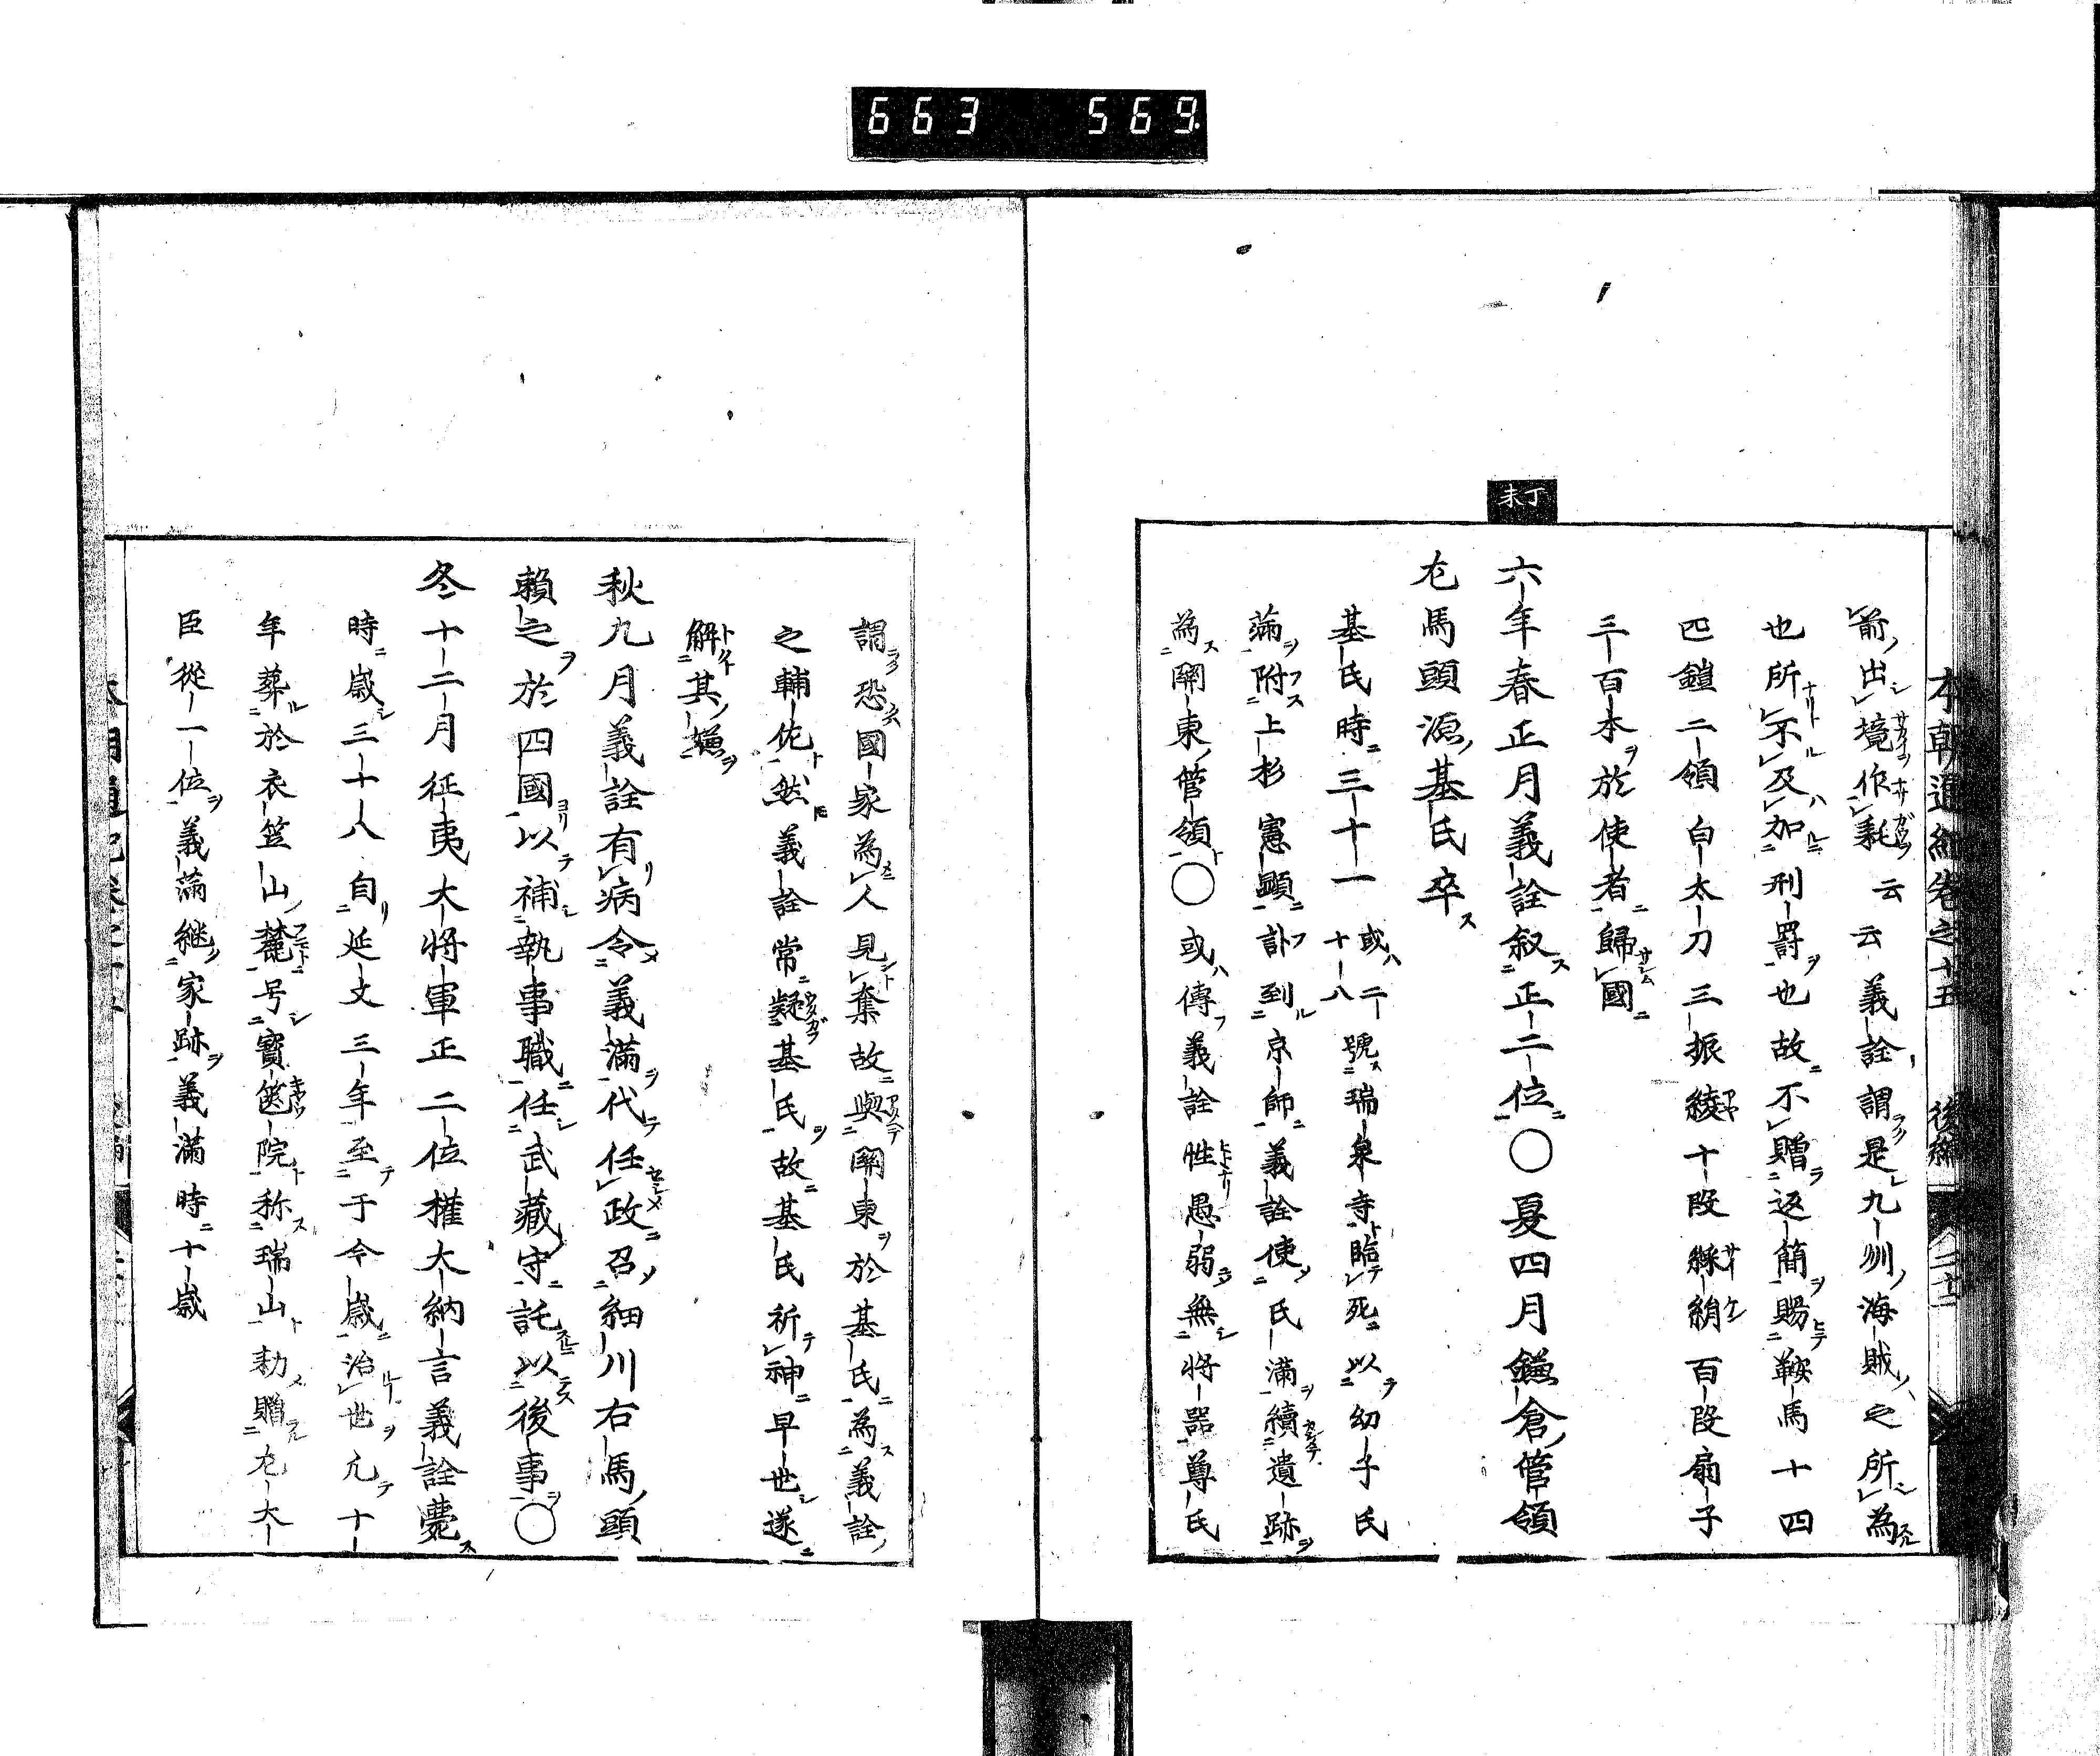 663 569
本朝通紀卷之十五 後編
前出境作耗云云義詮謂是九州海賊之所為
也所不及加刑罸也故不贈返簡賜鞍馬十四
匹鎧二領白太刀三振綾十段綵絹百段扇子
三百本於使者歸國
丁未
六年春正月義詮叙正二位○夏四月鎌倉管領
左馬頭源基氏卒
基氏時三十一或二十八號瑞泉寺臨死以幼子氏
満附上杉憲顕訃到京師義詮使氏満續遺跡
為関東管領○或傳義詮性愚弱無将器尊氏
謂恐國家為人見奪故與関東於基氏為義詮
之輔佐然義詮常疑基氏故基氏祈神早世遂
解其
秋九月義詮有病令義満代任政召細川右馬頭
頼之於四國以補執事職任武藏守託以後事○
冬十二月征夷大将軍正二位權大納言義詮薨
時歳三十八自延文三年至于今歳治世凢十
年葬於衣笠山麓号寳篋院称瑞山勅贈左大
臣從一位義満継家跡義満時十歳